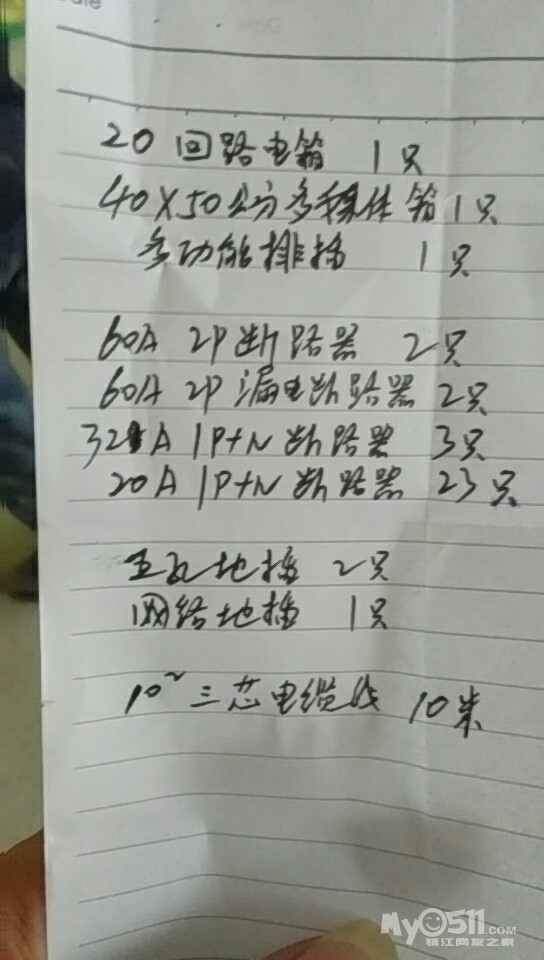 20 回路电箱 1只
40X50公分多媒体箱1只
多功能排插 1只
60A 2P断路器 2只
60A 2P漏电断路器 2只
32A 1P+N断路器 3只
20A 1P+N断路器 23只
五孔地插 2只
网络地插 1只
10² 三芯电缆线 10米
My0511.com
镇江网友之家